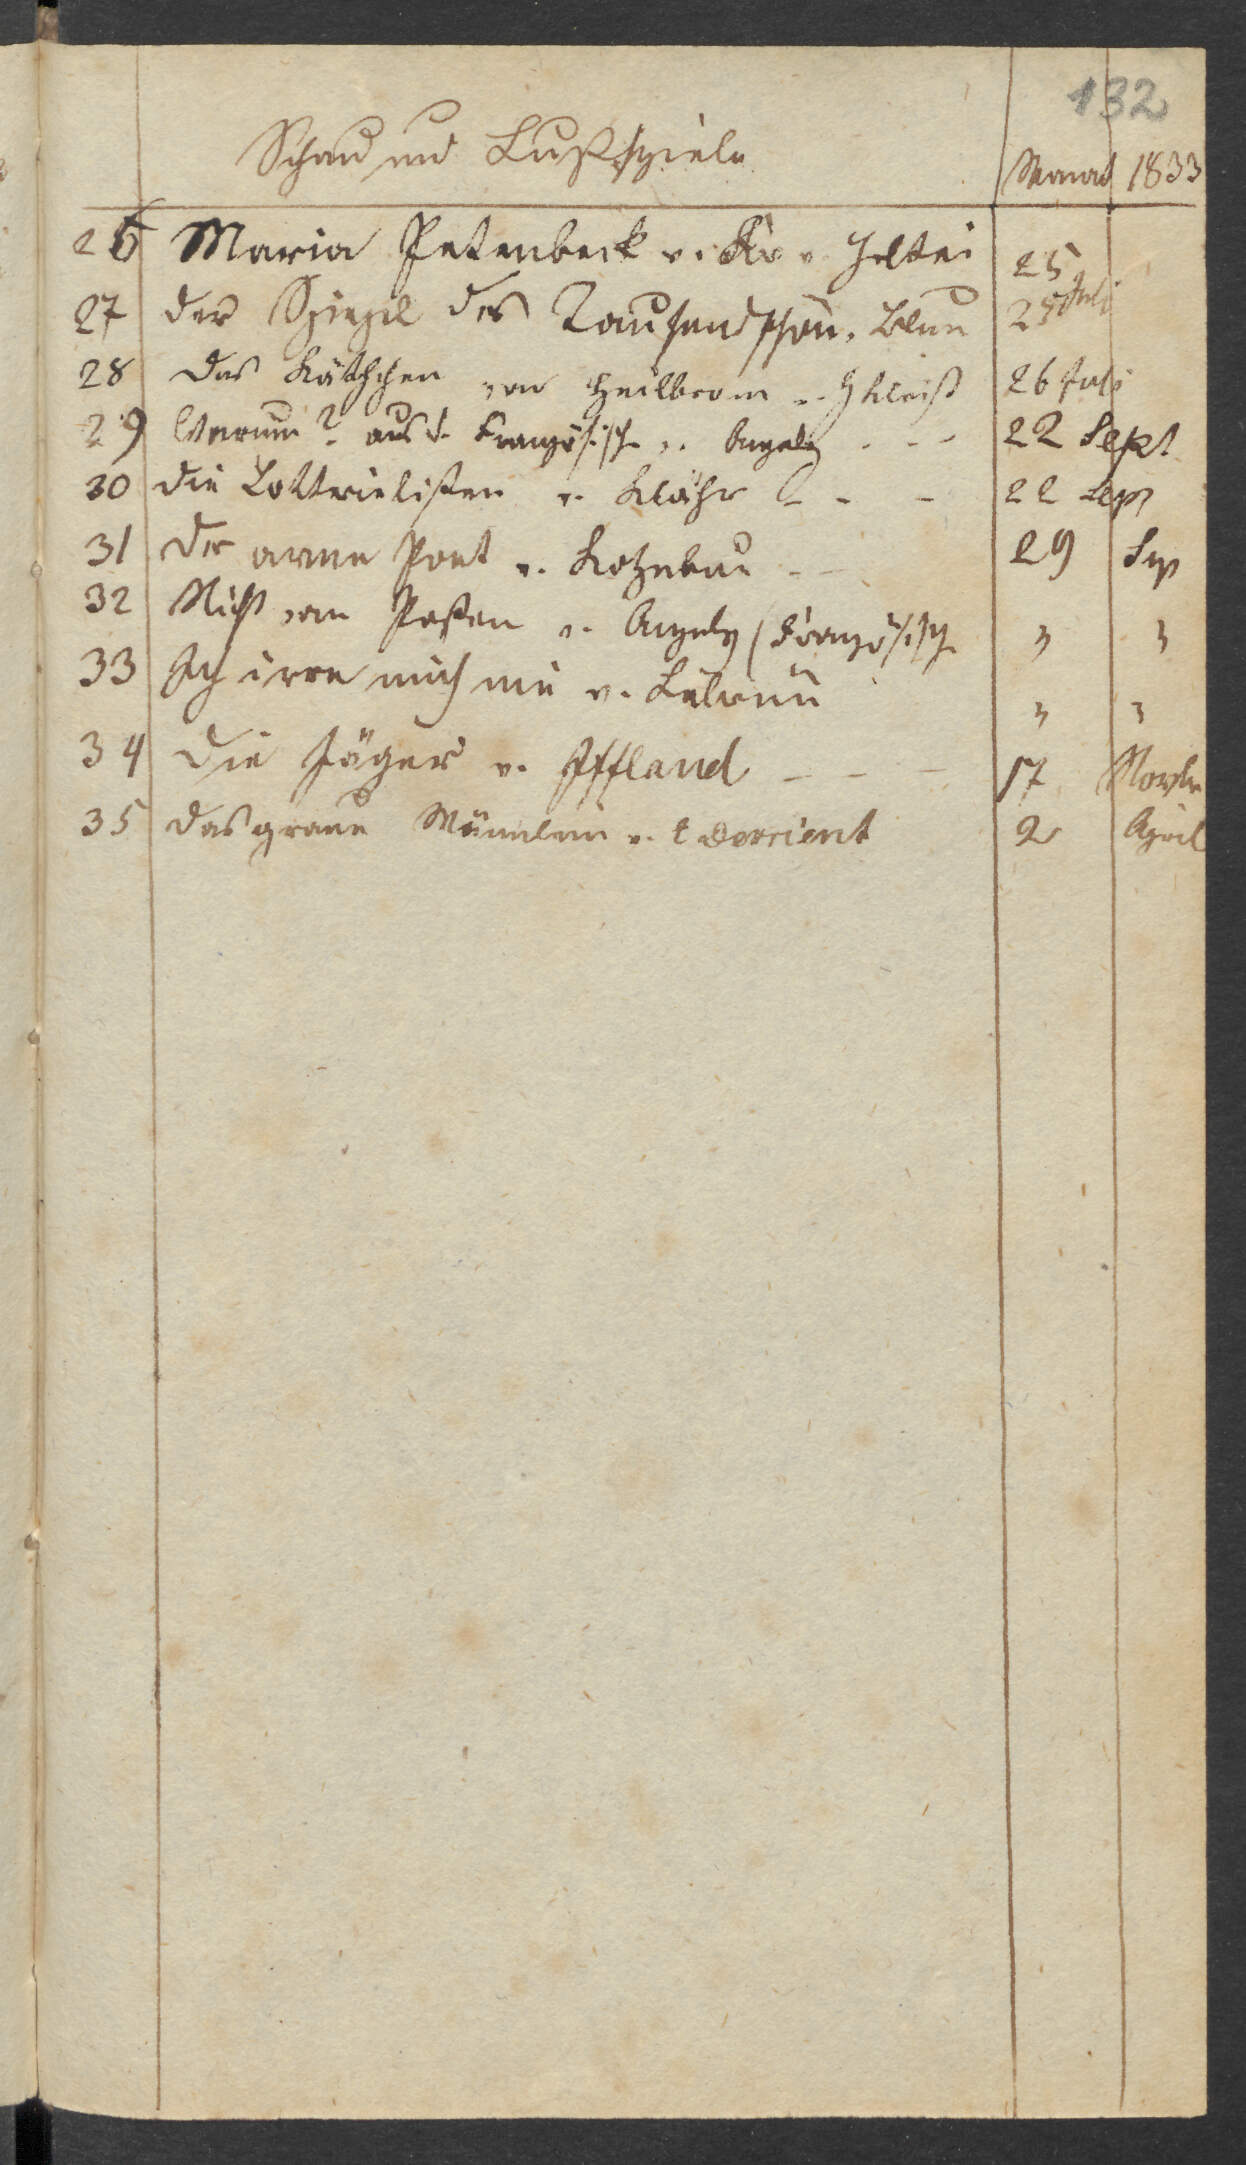 132
Schau und Lustspiele Monat 1833
26 Maria Petenbeck v. Fr v. Holtei 25
27 Der Spiegel des Tausendschön. Blum 25 Juli
28 Das Käthchen von Heilbronn v. H Kleist 26 Juli
29 Warum? aus d. Französisch v. Angely - - - 22 Sept
30 Die Lotterielisten v. Klähr - - 22 Sep
31 Der arme Poet v. Kotzebue - - 29 Sep
32 List von Posten v. Angely (Französisch " "
33 Ich irre mich nie v. Lebrun " "
34 Die Jäger v. Iffland - - - 17 Novbr
35 Das graue Männlein v. E Devrient 2 April